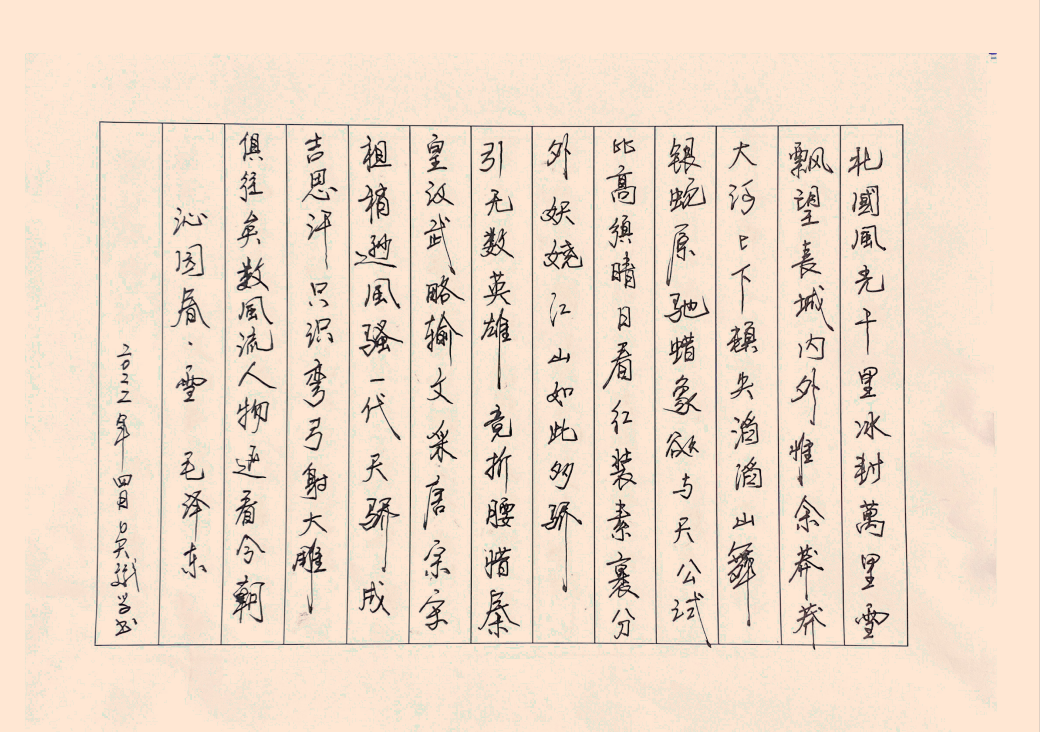 北國風光千里冰封萬里雪
飘望長城内外惟余莽莽
大河上下頓失滔滔山舞
银蛇原驰蜡象欲与天公试
比高須晴日看红装素裹分
外妖娆江山如此多骄
引无数英雄竟折腰惜秦
皇汉武略输文采唐宗宋
祖稍逊風骚一代天骄成
吉思汗只识弯弓射大雕
俱往矣数風流人物还看今朝
沁园春·雪 毛泽东
二〇二二年四月 吴 学书